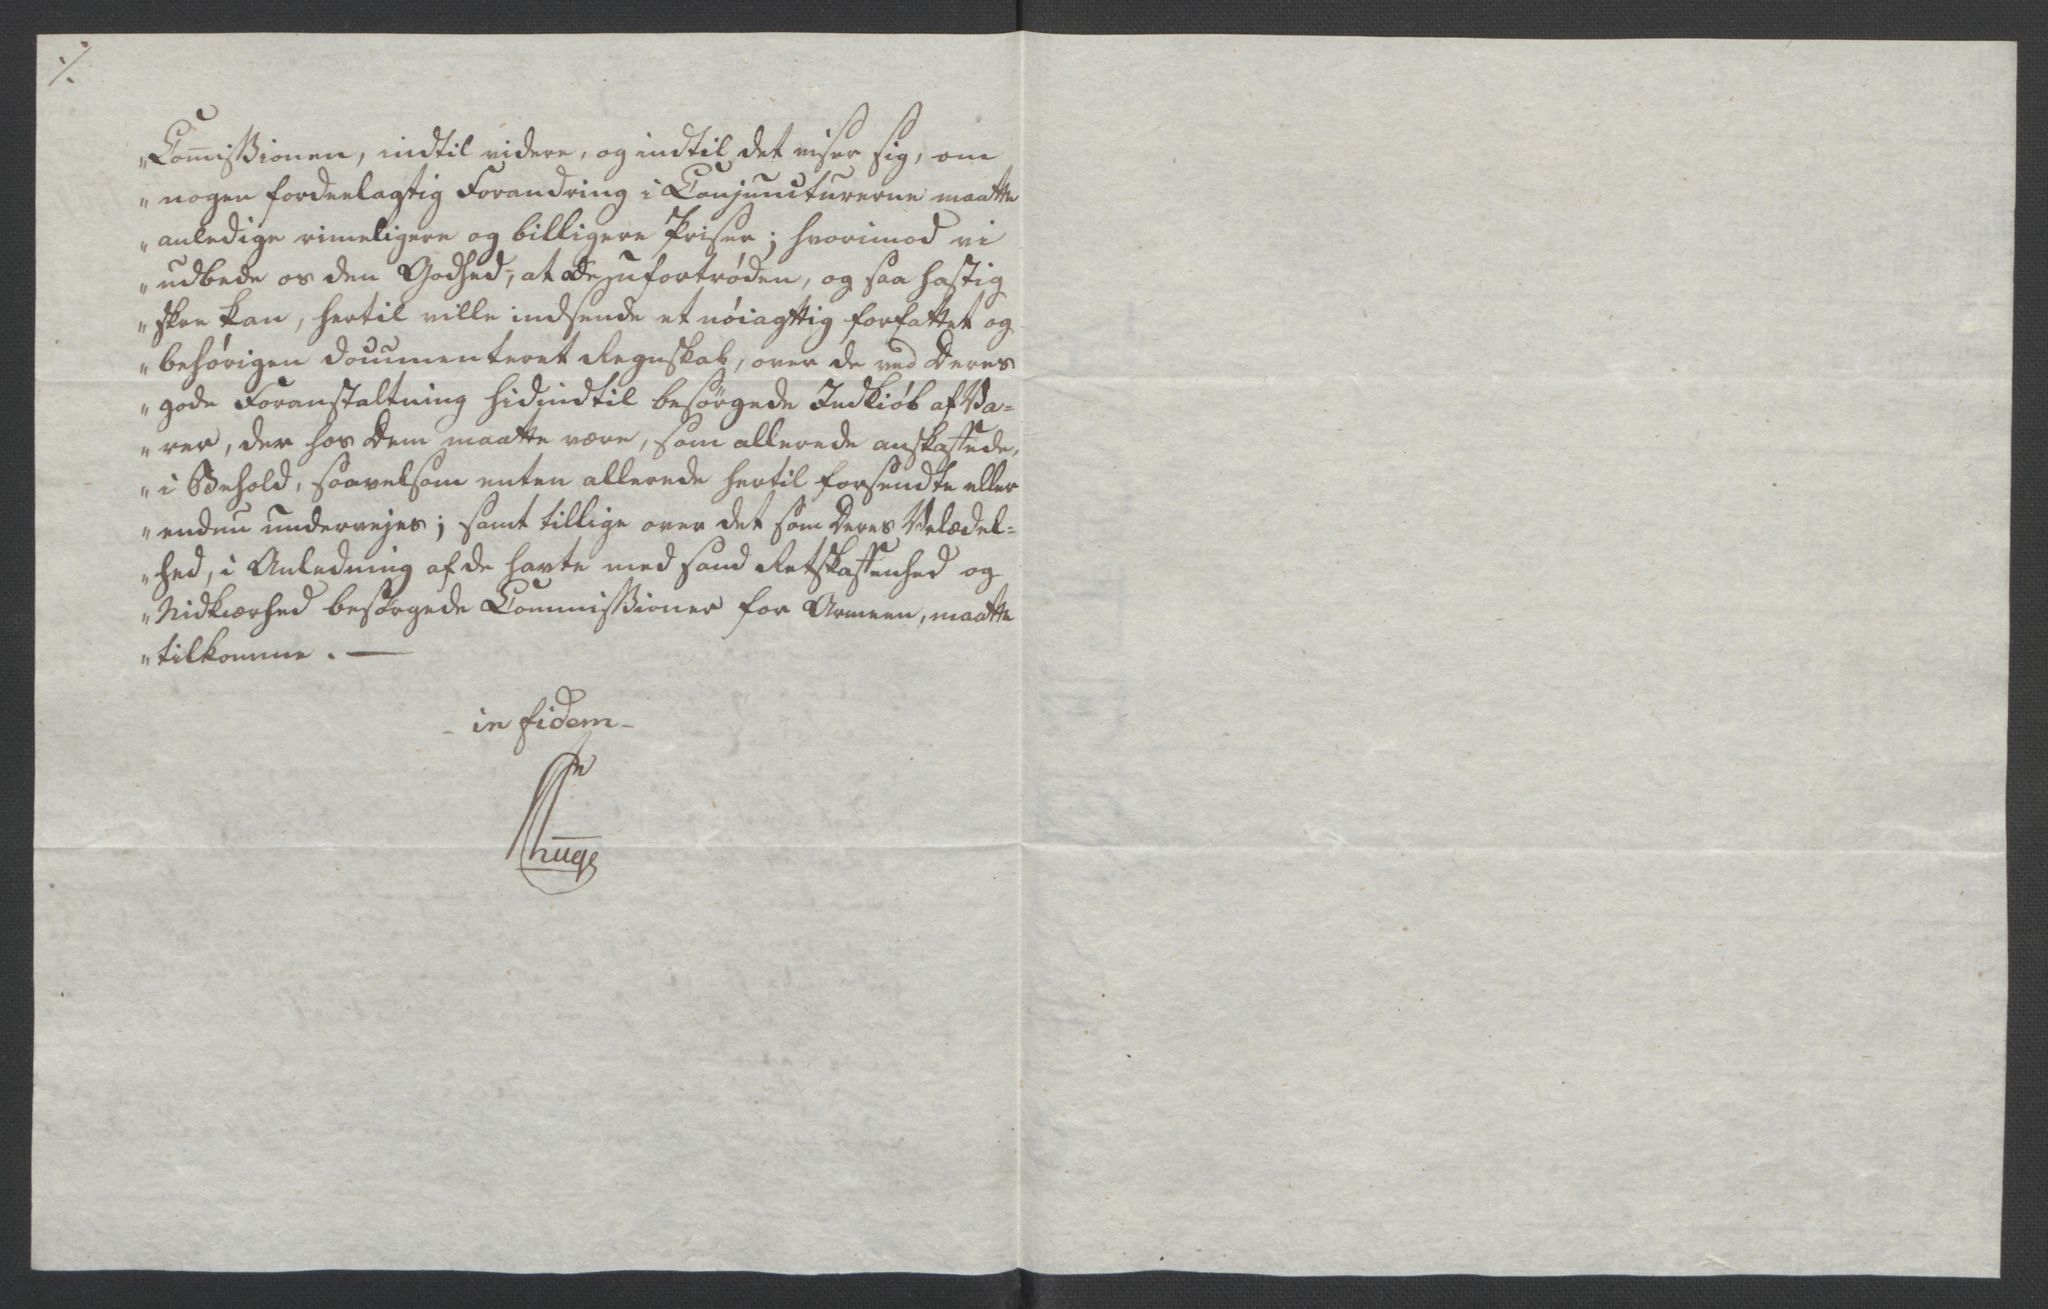 ./.
"Com̅issionen, indtil videre, og indtil det viser sig, om
"nogen fordeelagtig Forandring i Conjuncturerne maatte
"anledige rimeligere og billigere Priser; hvorimod vi
"udbede os den Godhed, at De ufortrøden, og saa hastig
"skee kan, hertil ville indsende et nøiagttig forfattet og
"behørigen documenteret Regnskab, over de ved Deres
"gode Foranstaltning hidindtil besørgede Indkiøb af Va=
"rer, der hos Dem maatte være, som allerede anskaffede,
"i Behold, saavelsom enten allerede hertil forsendte eller
"endnu undervejes; samt tillige over det som Deres Velædel=
"hed, i Anledning af de havte med sand Retskaffenhed og
"Nidkiærhed besørgede Commissioner for Armeen, maatte
"tilkomme. —
- in fidem -